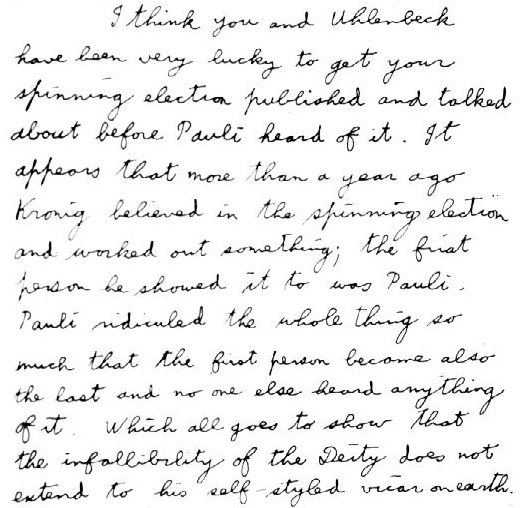 I think you and Uhlenbeck
have been very lucky to get your
spinning electron published and talked
about before Pauli heard of it. It
appears that more than a year ago
Kronig believed in the spinning electron
and worked out something; the first
person he showed it to was Pauli.
Pauli ridiculed the whole thing so
much that the first person became also
the last and no one else heard anything
of it. Which all goes to show that
the infallibility of the Deity does not
extend to his self-styled vicar on earth.